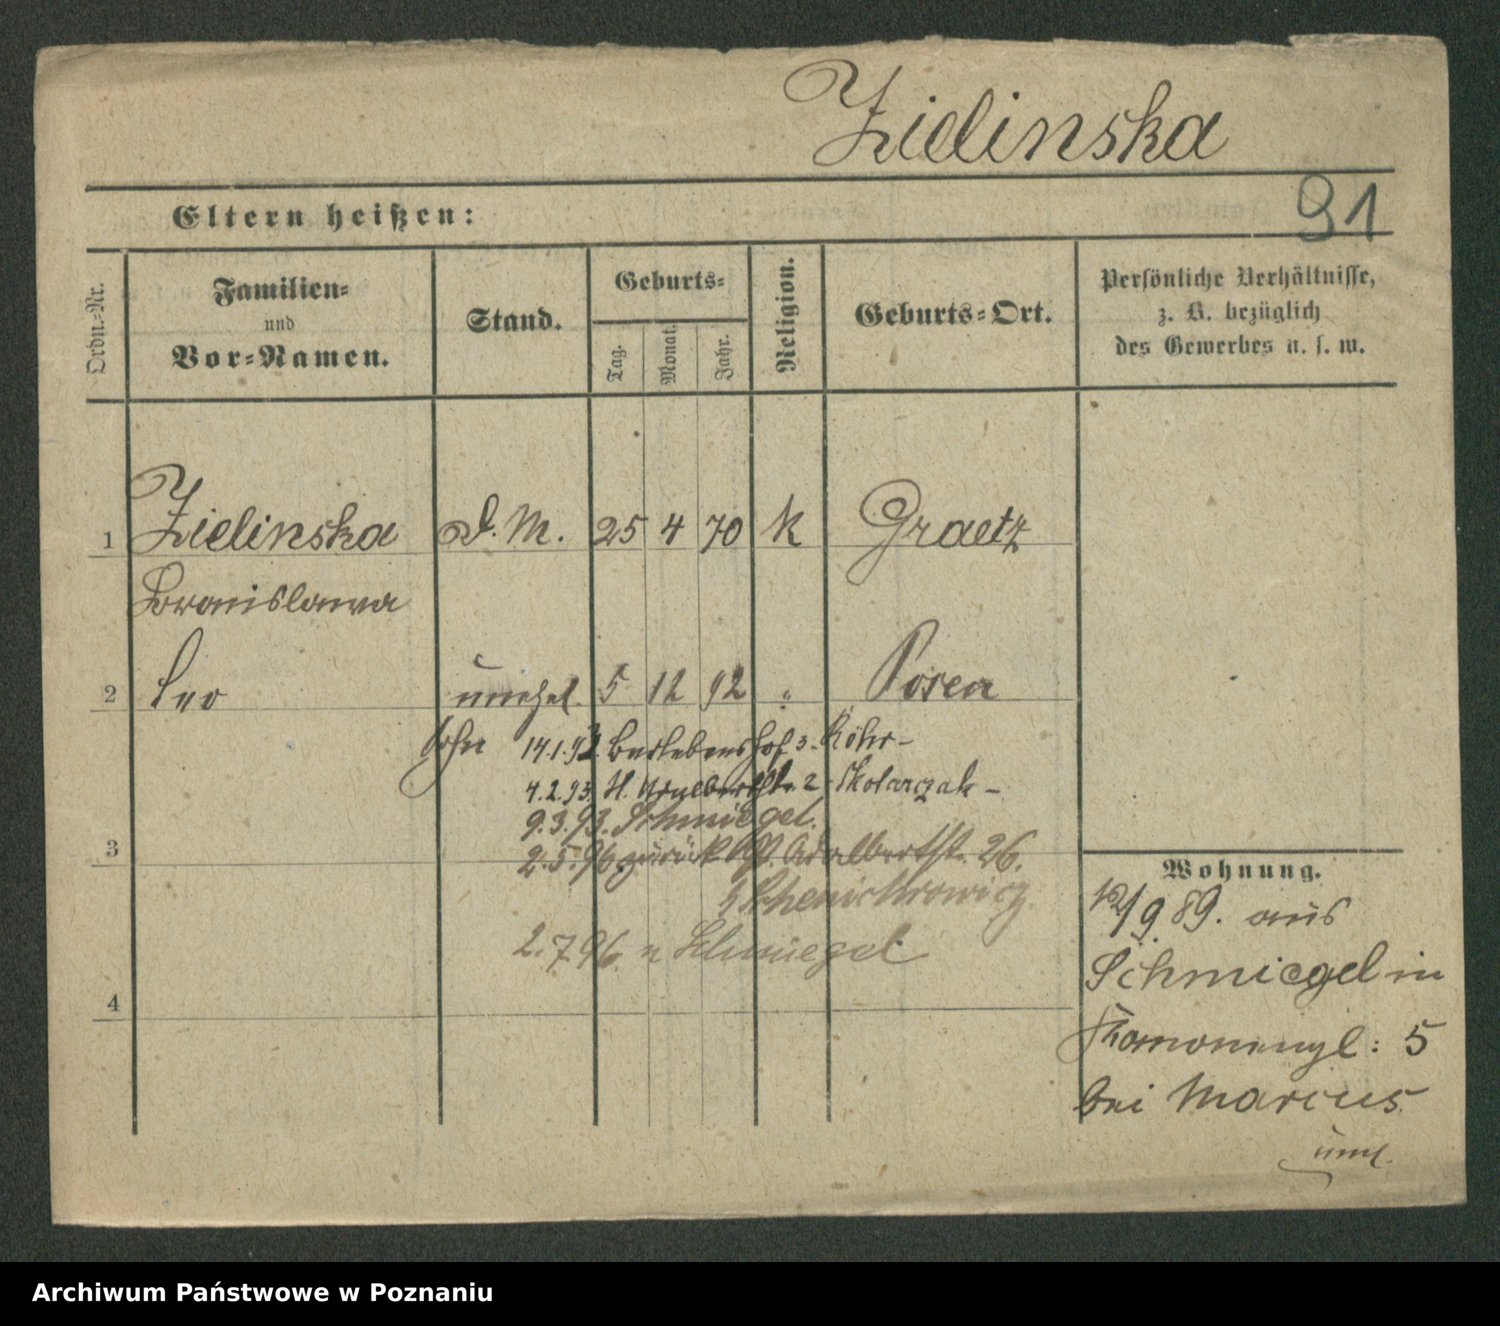 Zielinska
91
Eltern heißen:
Ordn.-Nr.
Familien-
und
Vor-Namen.
Stand.
Geburts-
Tag.
Monat.
Jahr.
Religion.
Geburts-Ort.
Persönliche Verhältnisse,
z. B. bezüglich
des Gewerbes u. s. w.
1 Zielinska D. M. 25 4 70 k Graetz
Bronislawa
2 Leo unehel. 5 12 92 " Posen
Sohn 14.1.93. Berlebenshof 3. Röhr-
4.2.93. St. Adalbertstr. 2 Skotarczak-
9.3.93. Schmiegel.
3
2.5.96 zurück Adalbertstr. 26.
2.7.96. n Schmiegel
4
Wohnung.
12/9 89. aus
Schmiegel in
5
bei Marcus